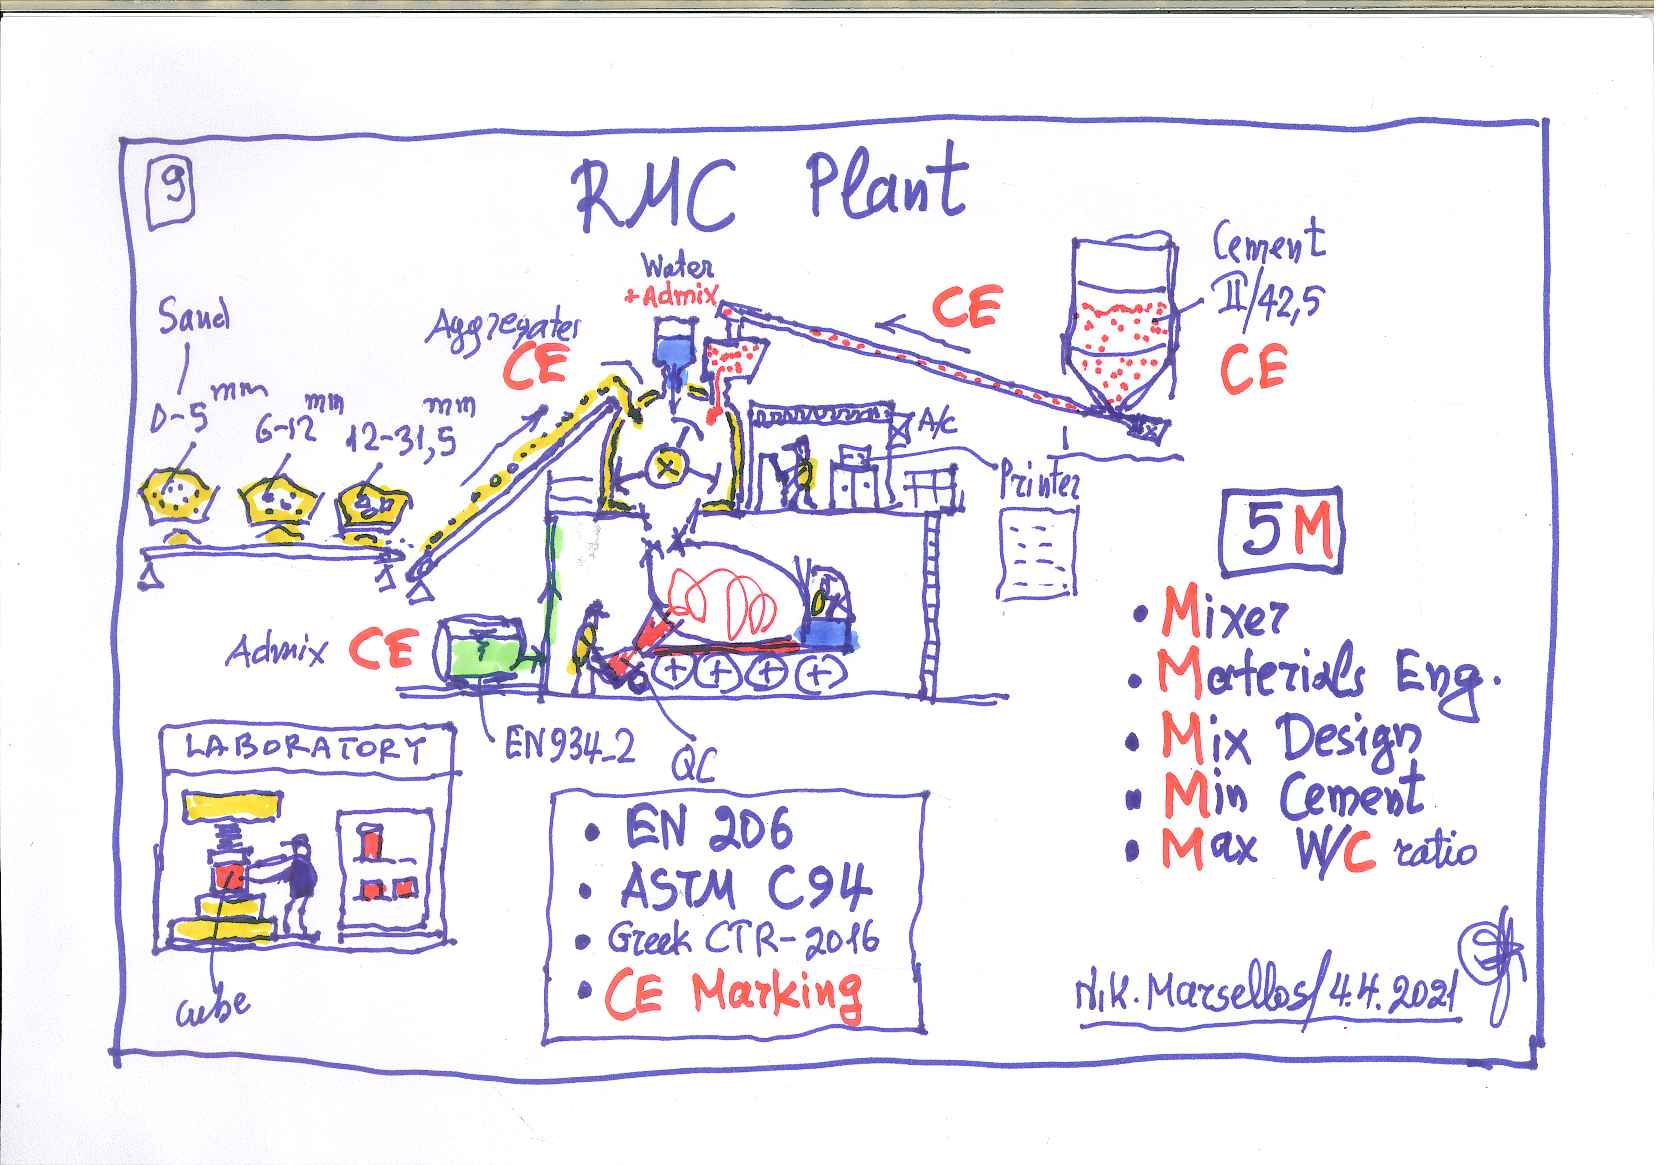 9
RMC Plant
Water
+Admix
Cement
II/42,5
CE
CE
Sand
Aggregates
CE
0-5 mm
6-12 mm
12-31,5 mm
A/C
Printer
5M
• Mixer
• Materials Eng.
• Mix Design
• Min Cement
• Max W/C ratio
Admix CE
EN934-2
QC
LABORATORY
cube
• EN 206
• ASTM C94
• Greek CTR-2016
• CE Marking
N.K. Marsellos/4.4.2021